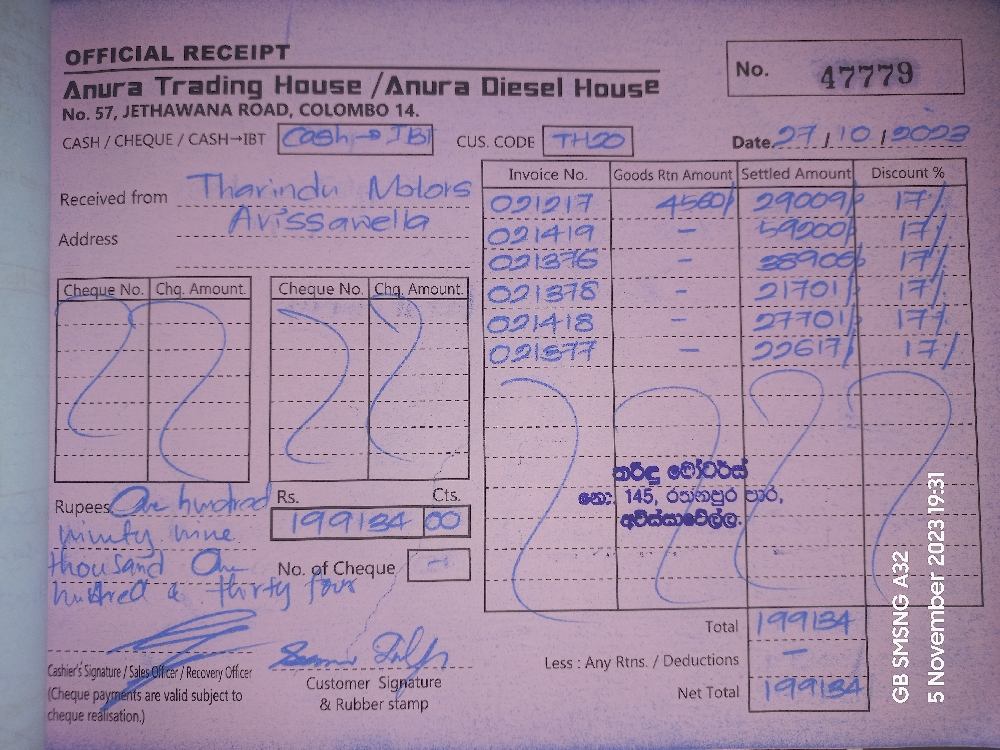 OFFICIAL RECEIPT
Anura Trading House /Anura Diesel House
No. 57, JETHAWANA ROAD, COLOMBO 14.
No. 47779
CASH / CHEQUE / CASH→IBT Cash → IBT CUS. CODE TH20 Date. 27 / 10 / 2023
Received from Tharindu Motors
Address Avissawella
Invoice No. Goods Rtn Amount Settled Amount Discount %
021217 4560/ 29009/ 17%
021419 – 59200/ 17%
021376 – 38906/ 17%
021378 – 21701/ 17%
021418 – 27701/ 17%
021377 – 22617/ 17%
Cheque No. Chq. Amount. Cheque No. Chq. Amount.
තරිඳු මෝටර්ස්
නො: 145, රත්නපුර පාර,
අවිස්සාවේල්ල.
Rupees One hundred
ninty nine
thousand One
hundred & thirty four
Rs. Cts.
199134 00
No. of Cheque –
Total 199134
Less : Any Rtns. / Deductions –
Net Total 199134
Cashier's Signature / Sales Officer / Recovery Officer
(Cheque payments are valid subject to
cheque realisation.)
Customer Signature
& Rubber stamp
GB SMSNG A32
5 November 2023 19:31